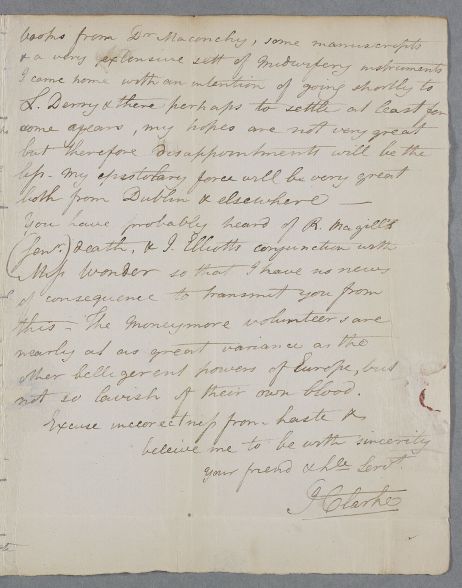 books from Dr Maconchy, some manuscripts
& a very extensive sett of Midwifery instruments
I came home with an intention of going shortly to
L. Derry & there perhaps to settle at least for
some years, my hopes are not very great
but therefore disappointments will be the
less - my epistolary force will be very great
both from Dublin & elsewhere —
You have probably heard of R. Magill's
(Senr.) death, & J. Elliotts conjunction with
Miss Wonder so that I have no news
of consequence to transmit you from
this - The Moneymore volunteers are
nearly at as great variance as the
other belligerent powers of Europe, but
not so lavish of their own blood.
Excuse incorrectness from haste &
beleive me to be with sincerity
Your friend & hle Servt.
J Clarke